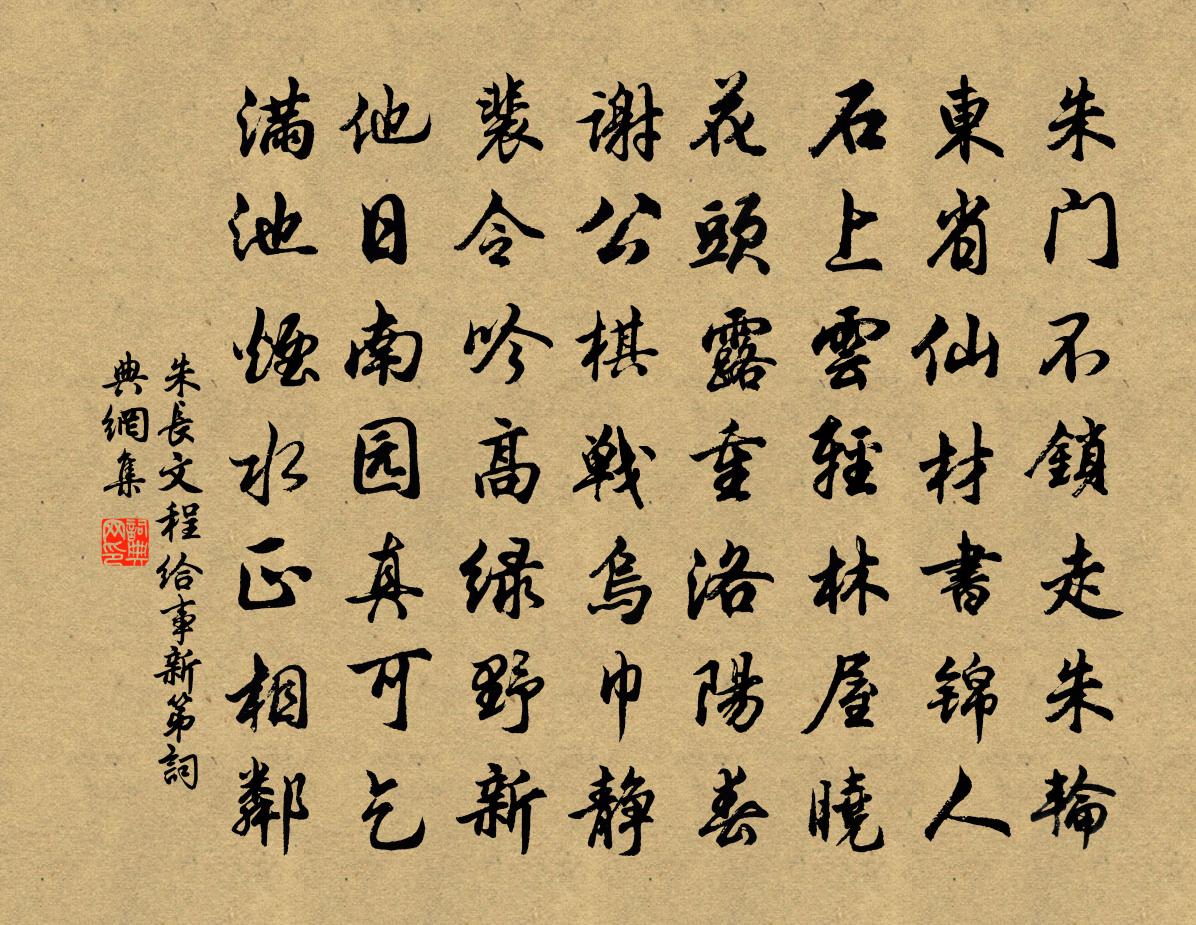 朱门不鎖走朱輪
東省仙材書錦人
石上雲輕林屋曉
花頭露重洛陽春
謝公棋戦烏巾静
裴令吟高绿野新
他日南园真可乞
满池煙水正相鄰
朱長文程给事新第詞
典網集
詞典网印